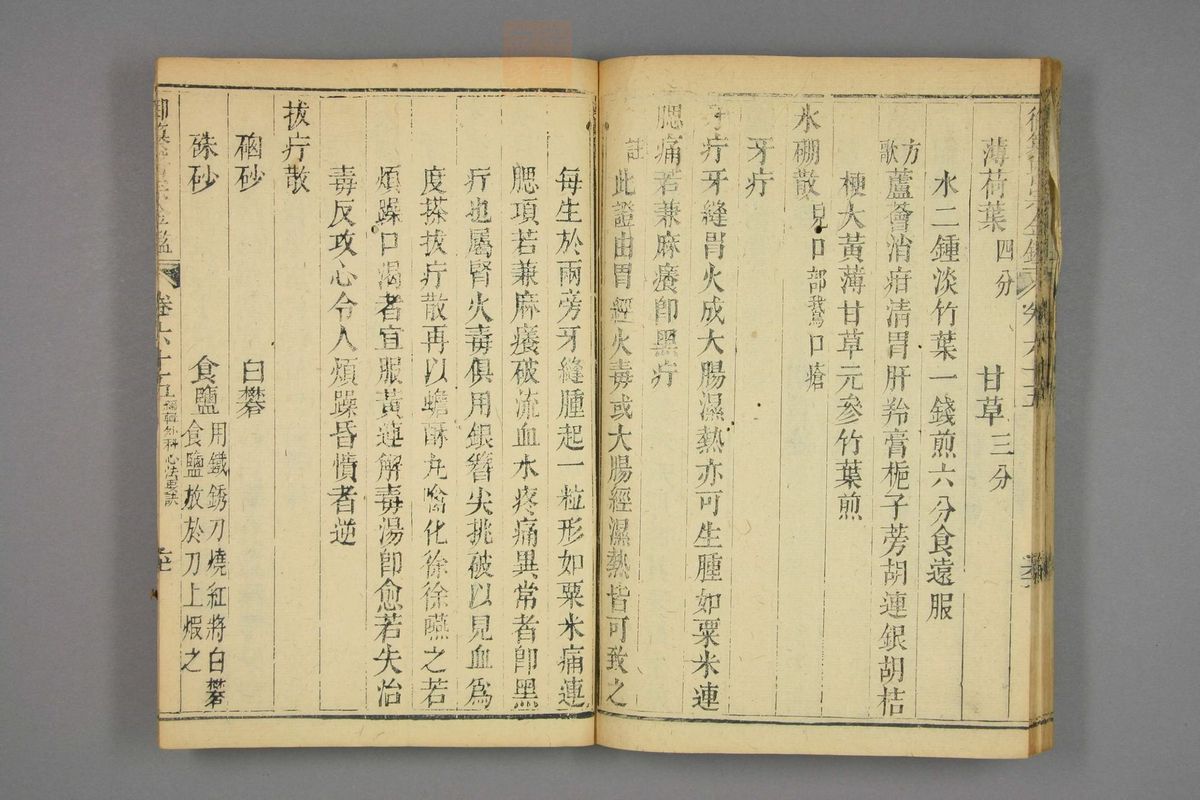 薄荷葉四分　甘草三分
水二鍾淡竹葉一錢煎六分食遠服
方歌　蘆薈消疳清胃肝羚膏梔子蒡胡連銀胡桔
極大黃薄甘草元參竹葉煎
氷硼散見口部鵞口瘡
牙疔
牙疔牙縫胃火成大腸濕熱亦可生腫如粟米連
腮痛若兼麻癢卽黑疔
註　此證由胃經火毒或大腸經濕熱皆可致之
每生於兩旁牙縫腫起一粒形如粟米痛連
腮項若兼麻癢破流血水疼痛異常者卽黑
疔也屬腎火毒俱用銀簪尖挑破以見血爲
度搽拔疔散再以蟾酥丸噙化徐徐嚥之若
煩躁口渴者宜服黃連解毒湯卽愈若失治
毒反攻心令人煩躁昏憒者逆
拔疔散
硇砂　白礬
硃砂　食鹽　用鐵銹刀燒紅將白礬
食鹽放於刀上煆之
卷六十五　編輯外科心法要訣